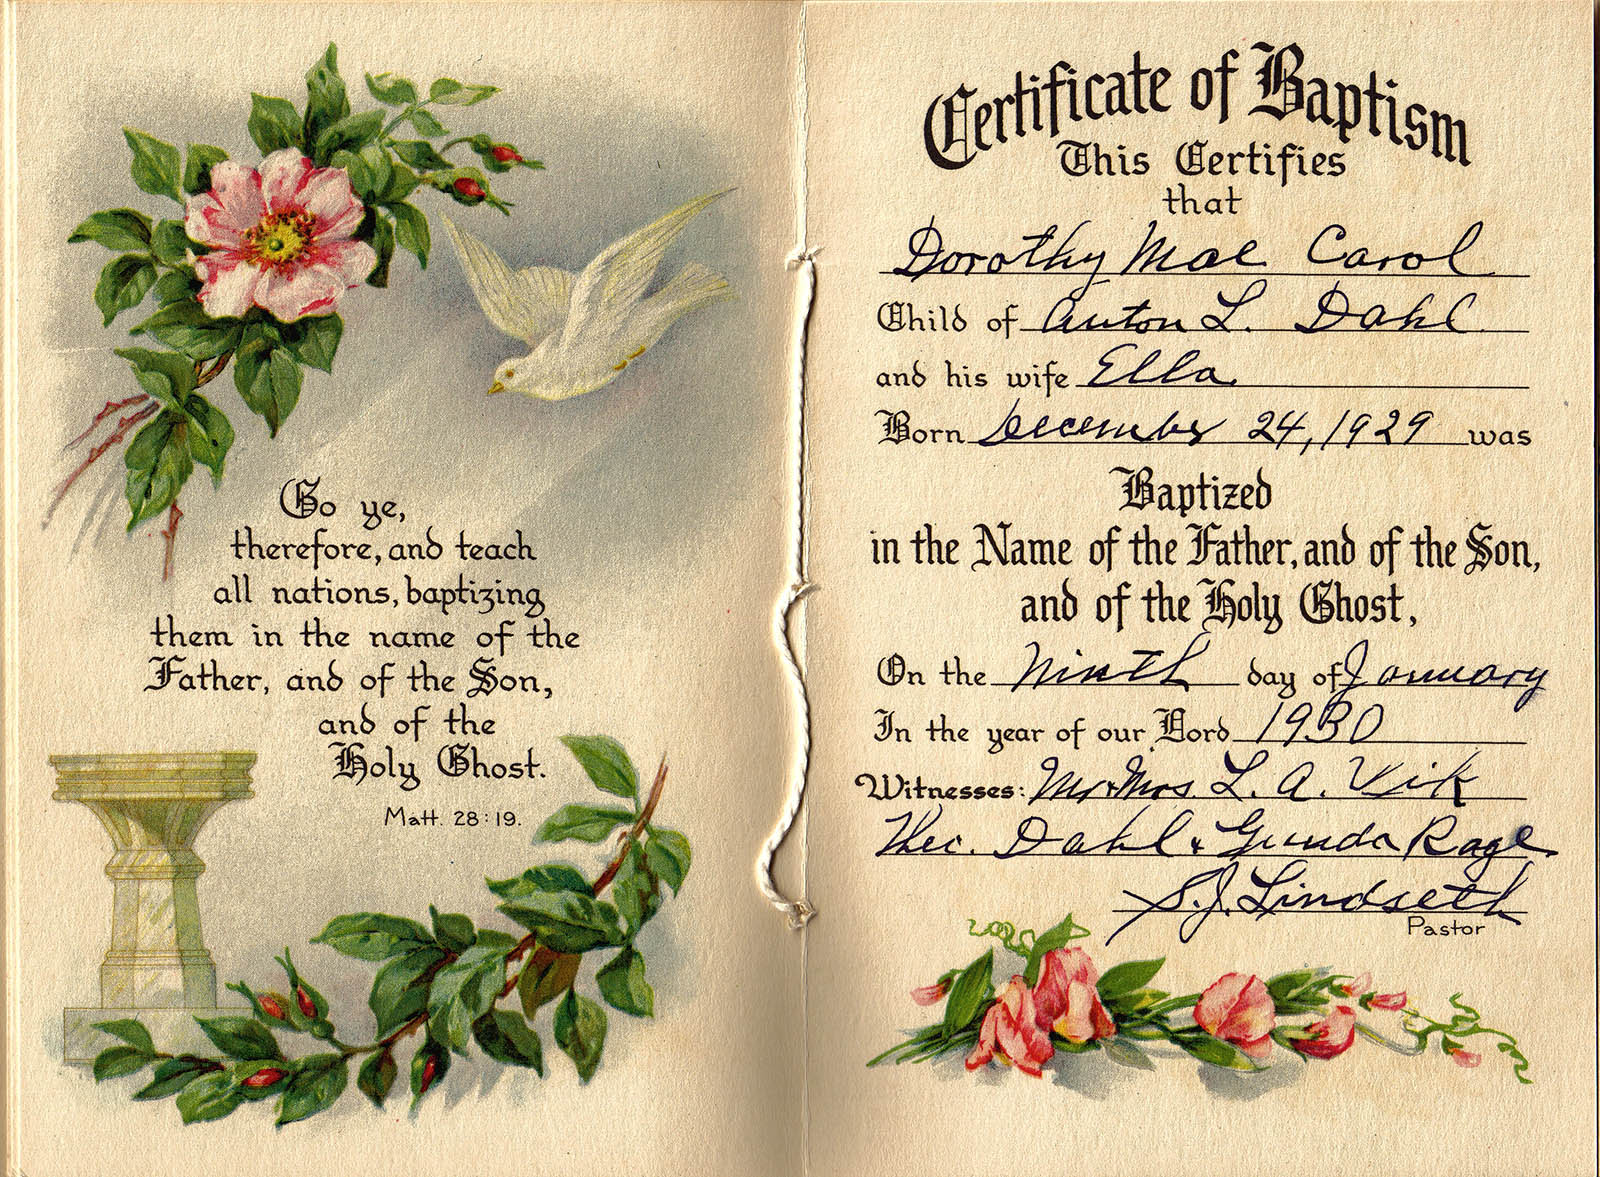 Go ye,
therefore, and teach
all nations, baptizing
them in the name of the
Father, and of the Son,
and of the
Holy Ghost.
Matt. 28:19.
Certificate of Baptism
This Certifies
that
Dorothy Mae Carol
Child of Anton L. Dahl
and his wife Ella
Born December 24, 1929 was
Baptized
in the Name of the Father, and of the Son,
and of the Holy Ghost,
On the Ninth day of January
In the year of our Lord 1930
Witnesses: Mr & Mrs. L. A. Vik
Dahl & Gunda Rage
S. J. Lindseth
Pastor